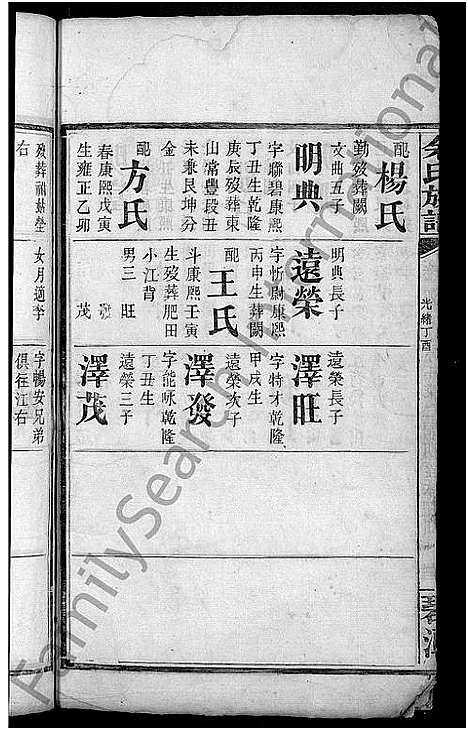 余氏族譜
光緒丁酉
配楊氏
勤歿葬闕
文曲五子
明典
字聯碧康熙
丁丑生乾隆
庚辰歿葬東
山常豐段丑
未兼艮坤分
金
配方氏
春康熙戊寅
生雍正乙卯
明典長子
遠榮
字忻尉康熙
丙申生葬闕
配王氏
斗康熙壬寅
生歿葬肥田
小江背
男三 旺
發
茂
遠榮長子
澤旺
字特才乾隆
甲戌生
遠榮次子
澤發
字能咏乾隆
丁丑生
遠榮三子
澤茂
歿葬祖妣塋
右
女月適李
字暢安兄弟
俱徃江右
FamilySearch International